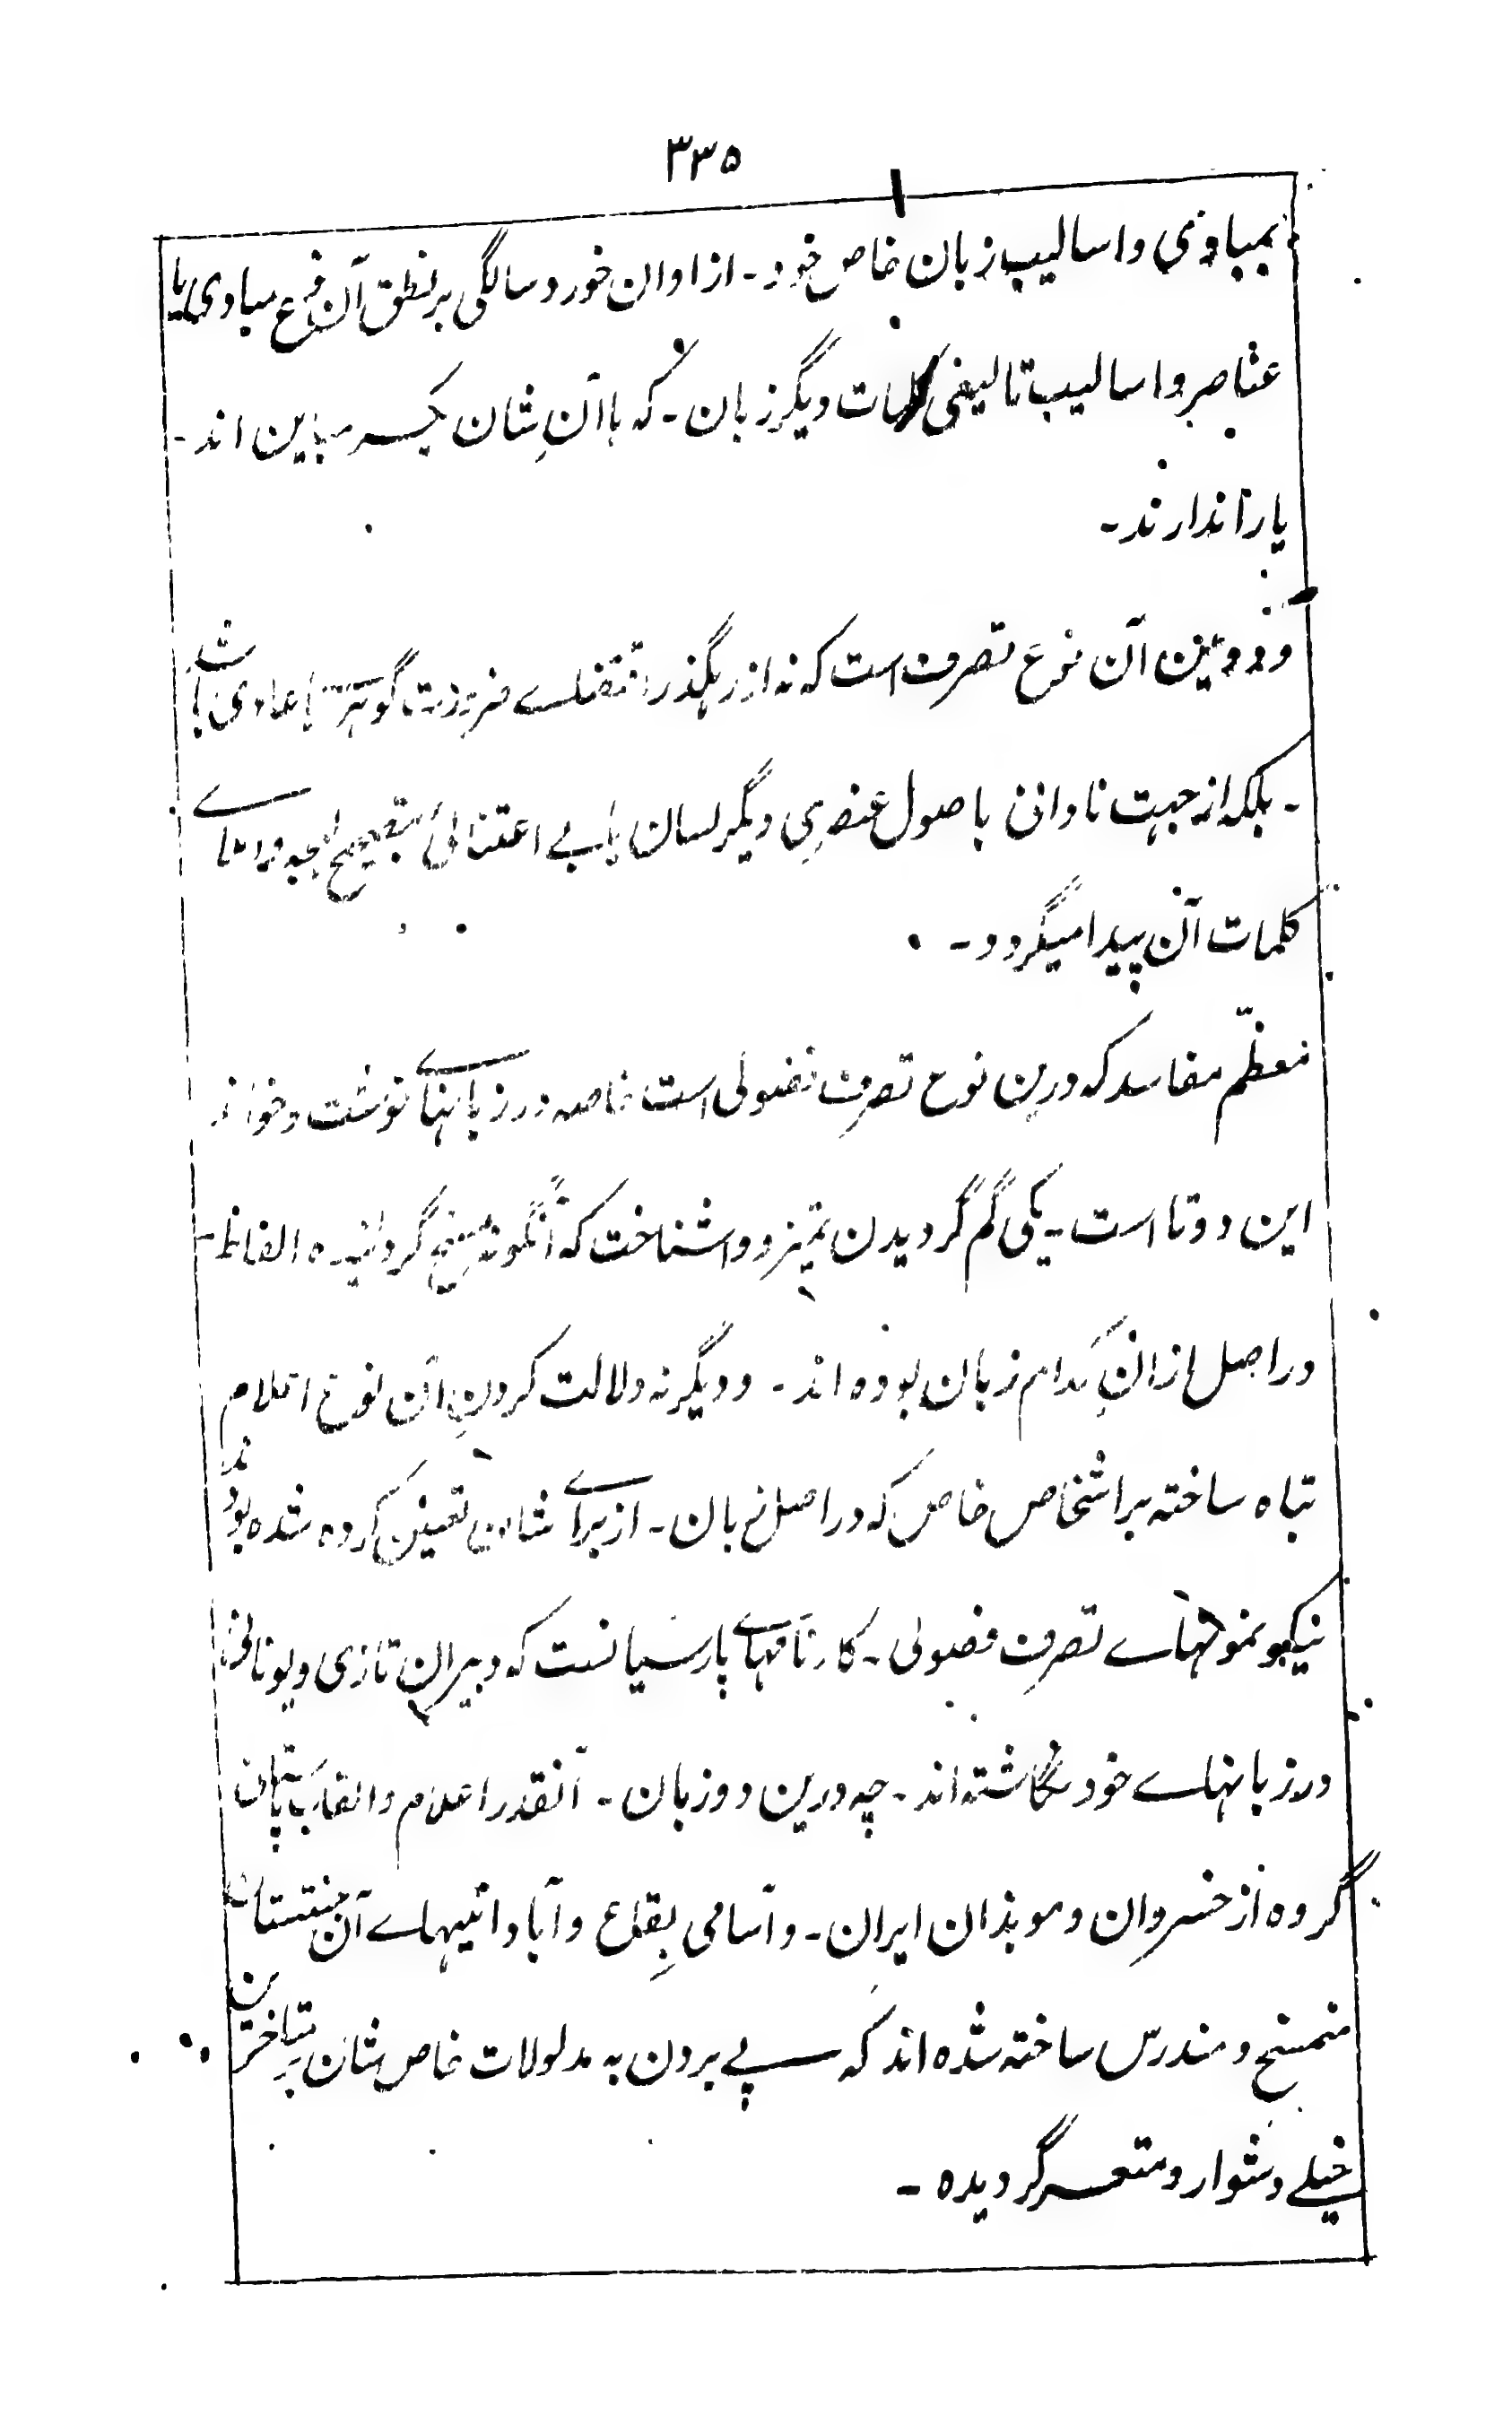 ٣٣٥
بمبادی و اسالیب زبان خاص خود - از اوان خورد سالگی بر نطق آن نوع مبادی یا
عناصر و اسالیب تالیفی کلمات دیگر زبان - که با آنِ شان یکسر مباین اند -
یارا ندارند -
و دوئین آن نوع تصرف است که نه از رهگذر اقتضاے ضرورت گوهری یا عادی باشد
- بلکه از جهت نادانی باصول عنصریِ دیگر لسان یا بے اعتنائی بتصحیح لهجه و املاے
کلمات آن پیدا میگردد -
معظّم مفاسد که درین نوع تصرف فضولی است خاصه در زبانهاے نوشت و خواند
این دو تا است - یکی گم گردیدن تمیز و واشناخت که آنگونه مسخ گردانیده الفاظ -
در اصل از انِ کدام زبان بوده اند - و دیگر نه دلالت کردنِ آن نوع اعلام
تباه ساخته بر اشخاص خاص که در اصل زبان - از براے شان تعیین کرده شده بودند
نیکو نمونهاے تصرف فضولی - کارنامهاے پارسیانست که دبیران تازی و یونانی
در زبانهاے خود نگاشته اند - چه درین دو زبان - آنقدر اعلام و القاب باستان
گروه از خسروان و موبذان ایران - و آسامی بِقاع و آبادانیهاے آن مینستان
منمسخ و مندرس ساخته شده اند که پے بردن به مدلولات خاص شان بر متاخرین
خیلے دشوار و متعسر گردیده -